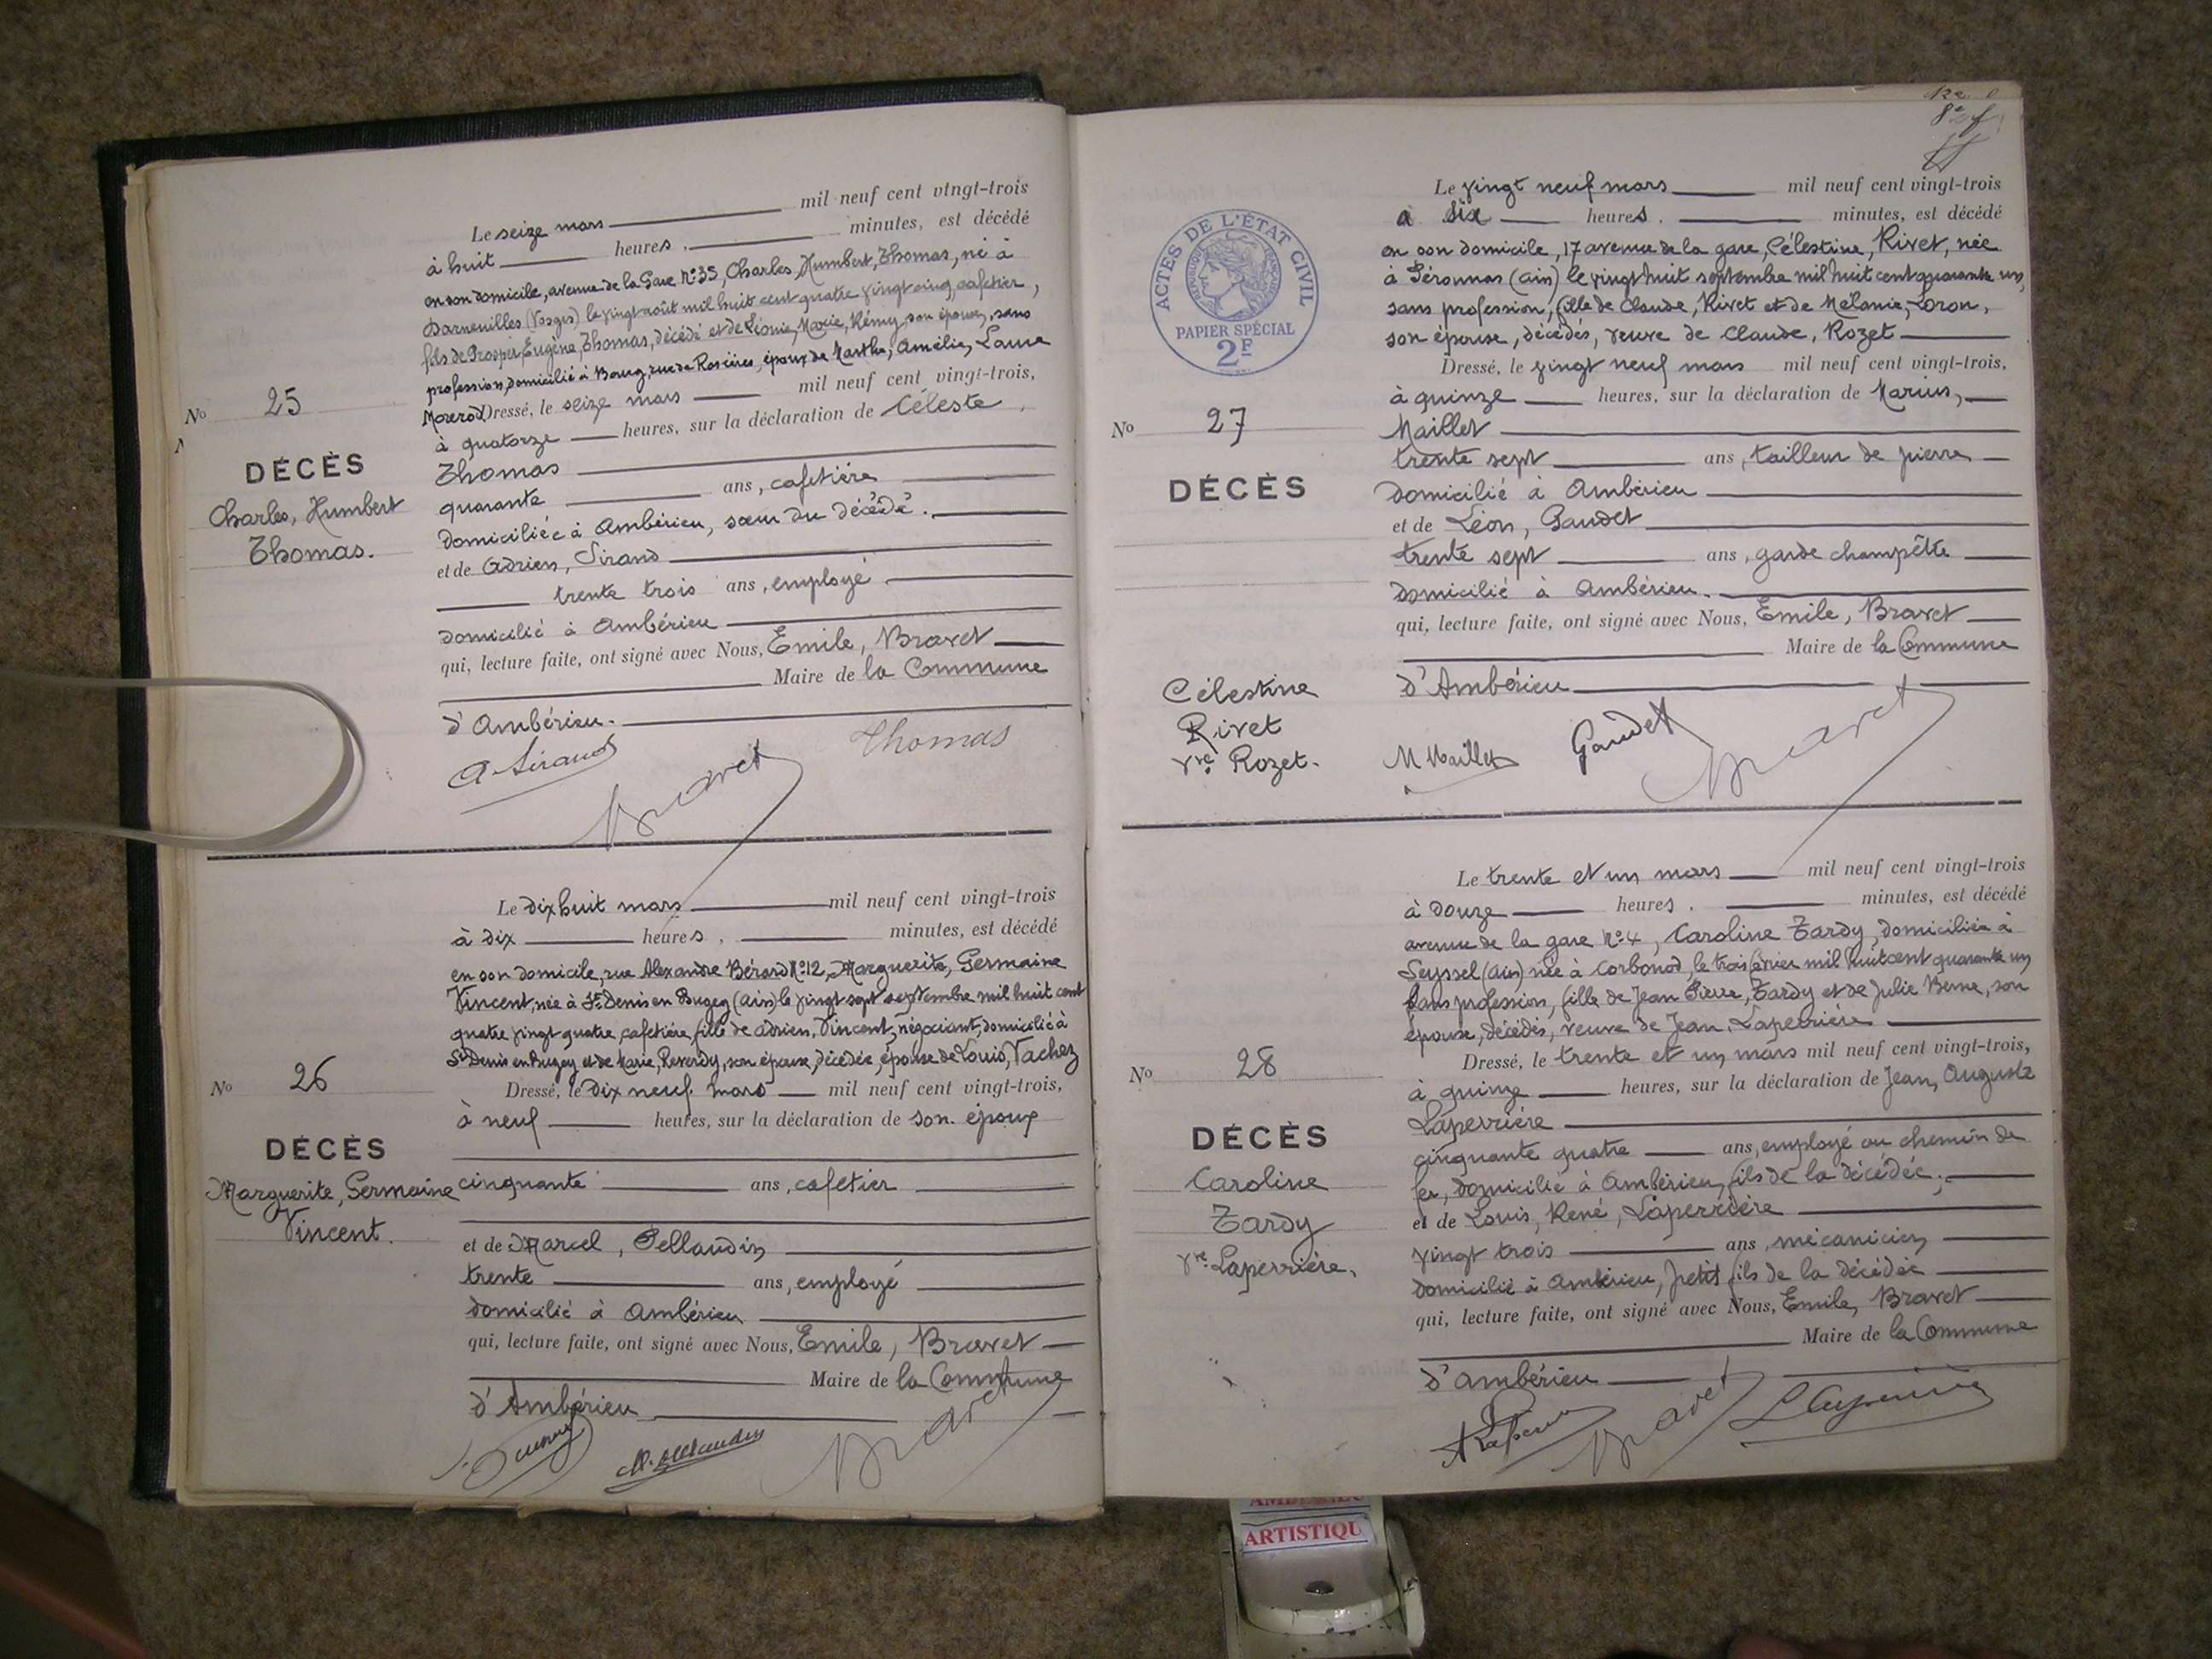 Le seize mars mil neuf cent vingt-trois
à huit heures, minutes, est décédé
en son domicile, avenue de la Gare No 35, Charles, Humbert, Thomas, né à
Darneuilles (Vosges) le vingt août mil huit cent quatre vingt cinq, cafetier,
fils de Prosper Eugène, Thomas, décédé et de Léonie, Marie, Rémy son épouse, sans
profession, domicilié à Bourg, rue de Rosières, époux de Marthe, Amélie, Laure
Dressé, le seize mars mil neuf cent vingt-trois,
à quatorze heures, sur la déclaration de Céleste,
Thomas
quarante ans, cafetière
domiciliée à Ambérieu, sœur du décédé.
et de Adrien, Sirand
trente trois ans, employé
domicilié à Ambérieu
qui, lecture faite, ont signé avec Nous, Emile, Bravet
Maire de la Commune
d'Ambérieu.
No 25
DÉCÈS
Charles, Humbert
Thomas.
A. Sirand
Bravet
Thomas
Le dix huit mars mil neuf cent vingt-trois
à dix heures, minutes, est décédé
en son domicile, rue Alexandre Bérard No 12, Marguerite, Germaine
Vincent, née à St Denis en Bugey (Ain) le vingt sept septembre mil huit cent
quatre vingt quatre, cafetière, fille de Adrien, Vincent, négociant, domicilié à
St Denis en Bugey et de Marie, Reverdy, son épouse, décédée, épouse de Louis, Vachez
Dressé, le dix neuf mars mil neuf cent vingt-trois,
à neuf heures, sur la déclaration de son époux
cinquante ans, cafetier
et de Marcel, Pellaudin
trente ans, employé
domicilié à Ambérieu
qui, lecture faite, ont signé avec Nous, Emile, Bravet
Maire de la Commune
d'Ambérieu
No 26
DÉCÈS
Marguerite, Germaine
Vincent.
M. Pellaudin
Bravet
ACTES DE L'ÉTAT CIVIL
RÉPUBLIQUE FRANÇAISE
PAPIER SPÉCIAL
2F
Le vingt neuf mars mil neuf cent vingt-trois
à six heures, minutes, est décédé
en son domicile, 17 avenue de la gare, Célestine, Rivet, née
à Péronnas (Ain) le vingt huit septembre mil huit cent quarante un,
sans profession, fille de Claude, Rivet et de Mélanie, Loron,
son épouse, décédés, veuve de Claude, Rozet
Dressé, le vingt neuf mars mil neuf cent vingt-trois,
à quinze heures, sur la déclaration de Marius,
Maillet
trente sept ans, tailleur de pierre
domicilié à Ambérieu
et de Léon, Gaudet
trente sept ans, garde champêtre
domicilié à Ambérieu.
qui, lecture faite, ont signé avec Nous, Emile, Bravet
Maire de la Commune
d'Ambérieu
No 27
DÉCÈS
Célestine
Rivet
Vve Rozet.
M Maillet
Gaudet
Bravet
Le trente et un mars mil neuf cent vingt-trois
à douze heures, minutes, est décédé
avenue de la gare No 4, Caroline Tardy, domiciliée à
Seyssel (Ain) née à Corbonod, le trois février mil huit cent quarante un
sans profession, fille de Jean Pierre, Tardy et de Julie Berne, son
épouse, décédés, veuve de Jean, Laperrière
Dressé, le trente et un mars mil neuf cent vingt-trois,
à quinze heures, sur la déclaration de Jean, Auguste
Laperrière
cinquante quatre ans, employé au chemin de
fer, domicilié à Ambérieu, fils de la décédée.
et de Louis, René, Laperrière
vingt trois ans, mécanicien
domicilié à Ambérieu, petit fils de la décédée
qui, lecture faite, ont signé avec Nous, Emile, Bravet
Maire de la Commune
d'Ambérieu
No 28
DÉCÈS
Caroline
Tardy
Vve Laperrière.
Bravet
L Laperrière
ARTISTIQU